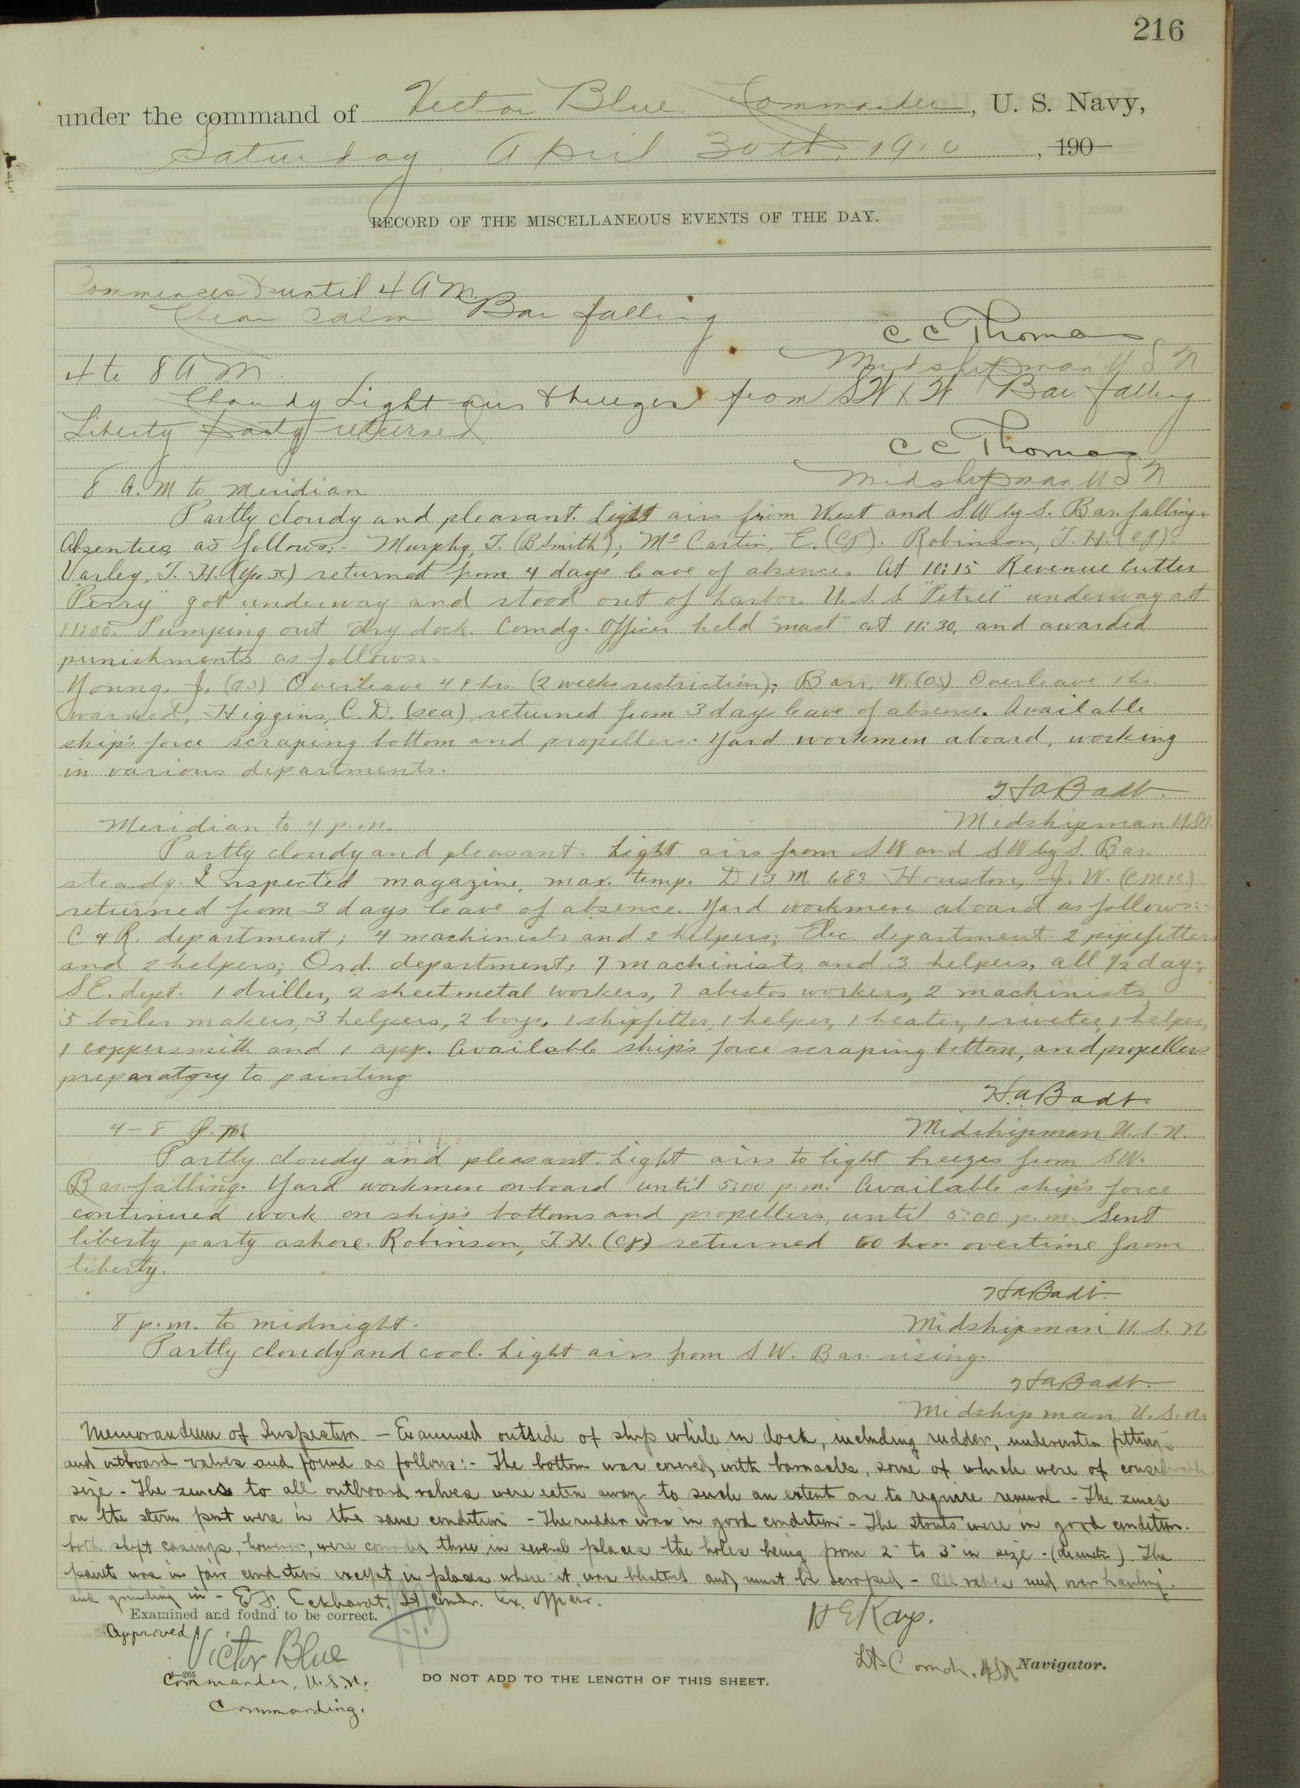 216
under the command of Victor Blue Commander, U. S. Navy,
Saturday, April 30th, 1910, 190
RECORD OF THE MISCELLANEOUS EVENTS OF THE DAY.
Commences & until 4 AM
Clear calm Bar falling
C C Thomas
Midshipman U S N
4 to 8 A M
Cloudy Light airs & breezes from SW x W Bar. falling
Liberty party returned
C C Thomas
Midshipman U S N
8 A.M to meridian
Partly cloudy and pleasant. Light airs from West and SW by S. Bar. falling.
Absentees as follows:- Murphy, T. (B'smith); McCartin, E. (CP). Robinson, T. H. (CP)
Varley, T. H. returned from 4 days leave of absence. At 10:15 Revenue Cutter
"Perry" got underway and stood out of harbor. U.S.S. "Petrel" underway at
11:00. Pumping out dry dock. Comdg. Officer held "mast" at 11:30, and awarded
punishments as follows:-
Young, J. Overleave 49 hrs. (2 weeks restriction); Barr, W. Overleave 1 hr.
warned; Higgins, C. D. (sea) returned from 3 days leave of absence. Available
ship's force scraping bottom and propellers. Yard workmen aboard, working
in various departments.
H a Badt.
Midshipman U.S.N.
Meridian to 4 p.m.
Partly cloudy and pleasant. Light airs from SW and SW by S. Bar.
steady. Inspected magazine, max. temp. D 13 M 68° Houston, J. W.
returned from 3 days leave of absence. Yard workmen aboard as follows:-
C & R. department; 4 machinists and 2 helpers; Elec. department 2 pipefitters
and 2 helpers; Ord. department, 7 machinists, and 3 helpers, all ½ day;
S E. dept. 1 driller, 2 sheetmetal workers, 7 abestos workers, 2 machinists,
5 boiler makers, 3 helpers, 2 boys, 1 shipfitter, 1 helper, 1 heater, 1 riveter, 1 helper,
1 coppersmith and 1 app. Available ship's force scraping bottom, and propellers
preparatory to painting.
H. a. Badt.
Midshipman U.S.N.
4-8 P.M
Partly cloudy and pleasant. Light airs to light breezes from SW.
Bar. falling. Yard workmen onboard until 5:00 p.m. Available ship's force
continued work on ship's bottoms and propellers, until 5:00 p.m. Sent
liberty party ashore. Robinson, T.H. (CP) returned 60 hrs. overtime from
liberty.
H a Badt.
Midshipman U. S. N.
8 p.m. to midnight.
Partly cloudy and cool. Light airs from SW. Bar. rising.
H a Badt.
Midshipman U. S. N.
Memorandum of Inspection - Examined outside of ship while in dock, including rudder, underwater fittings
and outboard valves and found as follows:- The bottom was covered with barnacles, some of which were of considerable
size - The zincs to all outboard valves were eaten away to such an extent as to require renewal - The zincs
on the stern post were in the same condition - The rudder was in good condition - The struts were in good condition.
both shaft casings, however, were in several places the holes being from 2" to 3" in size - (diameter). The
paint was in fair condition except in places where it was blistered and must be scraped - All valves need overhauling
and grinding in - E. F. Eckhardt, Lt Comdr. Ex. Officer.
Examined and found to be correct.
Approved:
Victor Blue
Commander, U.S.N.
Commanding.
H E Kays.
Lt Comdr. USN Navigator.
DO NOT ADD TO THE LENGTH OF THIS SHEET.